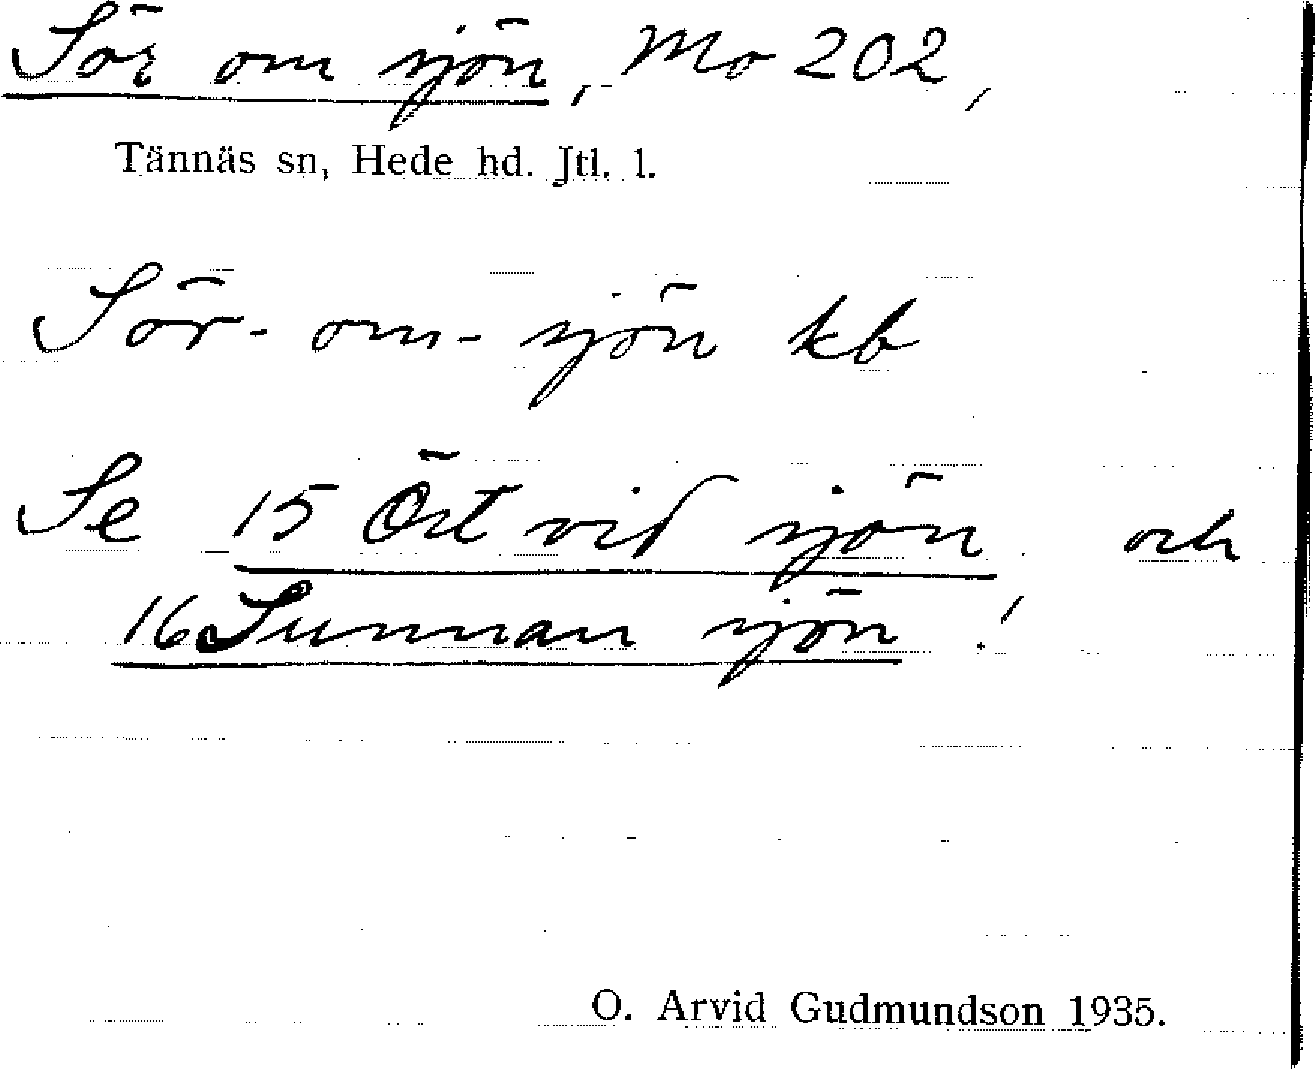 Sör om sjön, Mo 202,
Tännäs sn, Hede hd. Jtl. l.
Sör-om-sjön kb
Se 15 Öst vid sjön och
16 Sunnan sjön!
O. Arvid Gudmundson 1935.